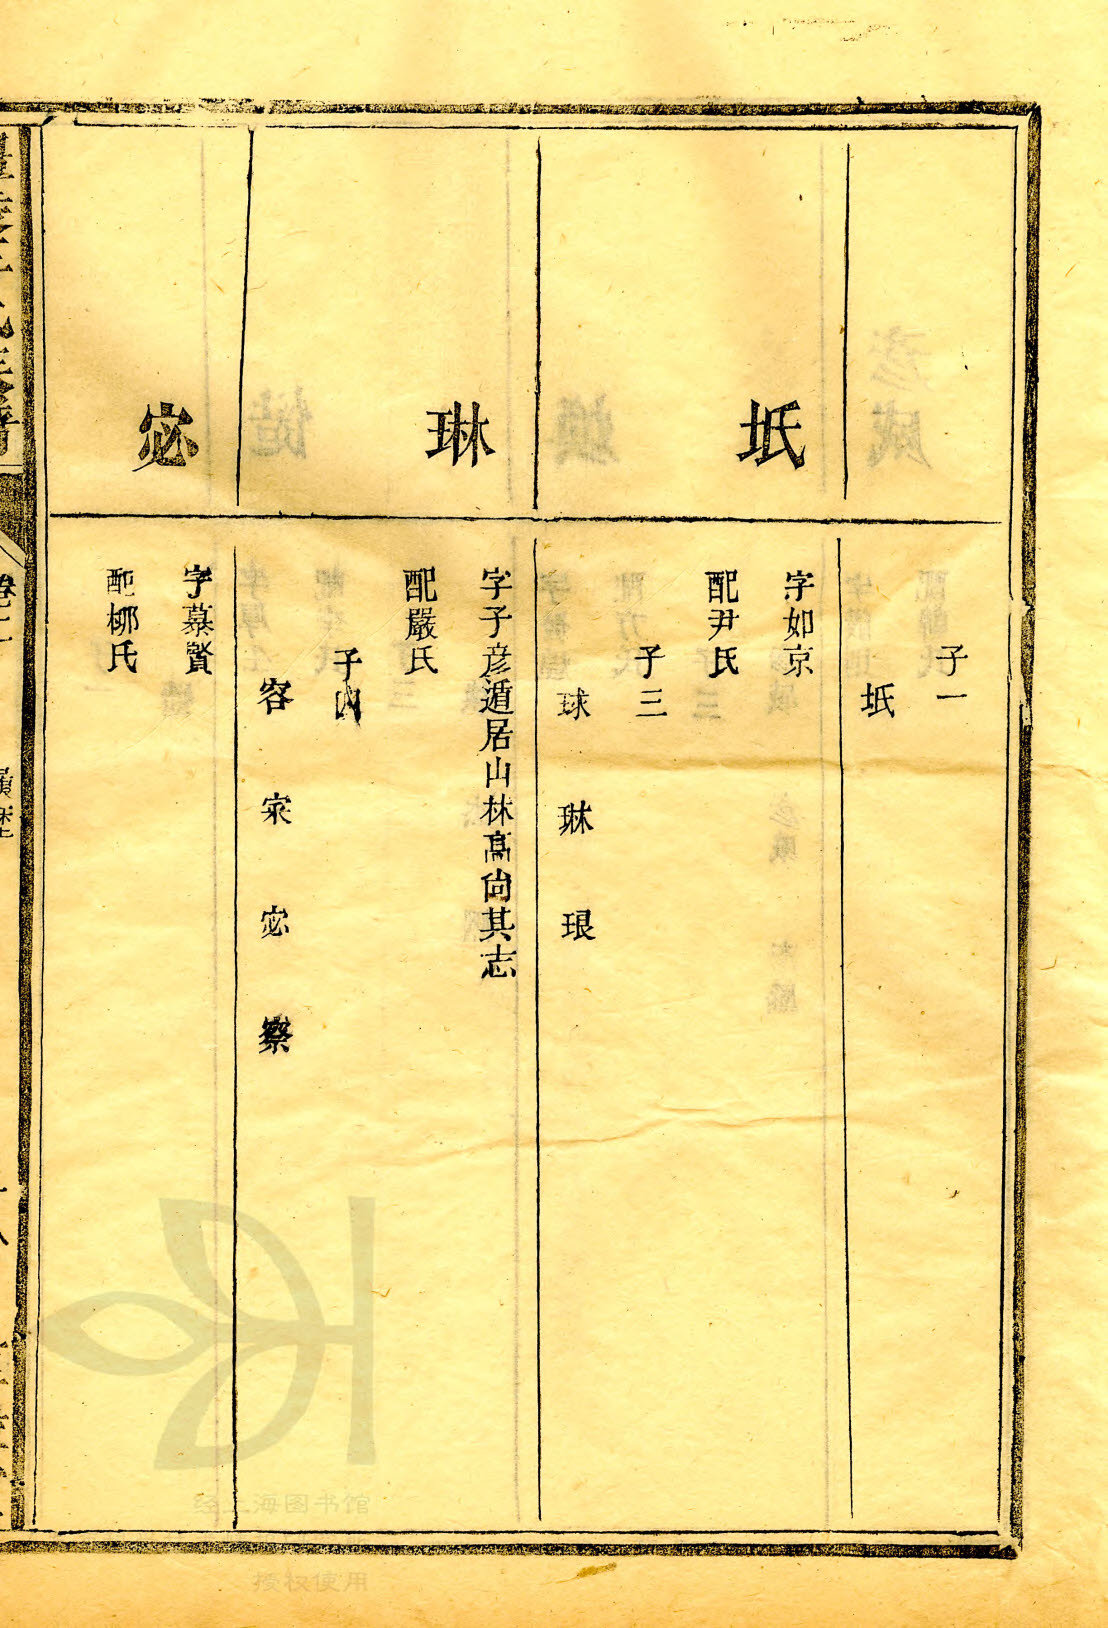 子一
坻
坻
字如京
配尹氏
子三
球 琳 琅
琳
字子彦遁居山林高尚其志
配嚴氏
子四
容 寀 宓 察
宓
字慕賢
配柳氏
氏族譜
卷二
經上海图书馆
授权使用